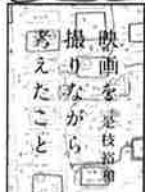 映画を
撮りながら
考えたこと
是枝裕和